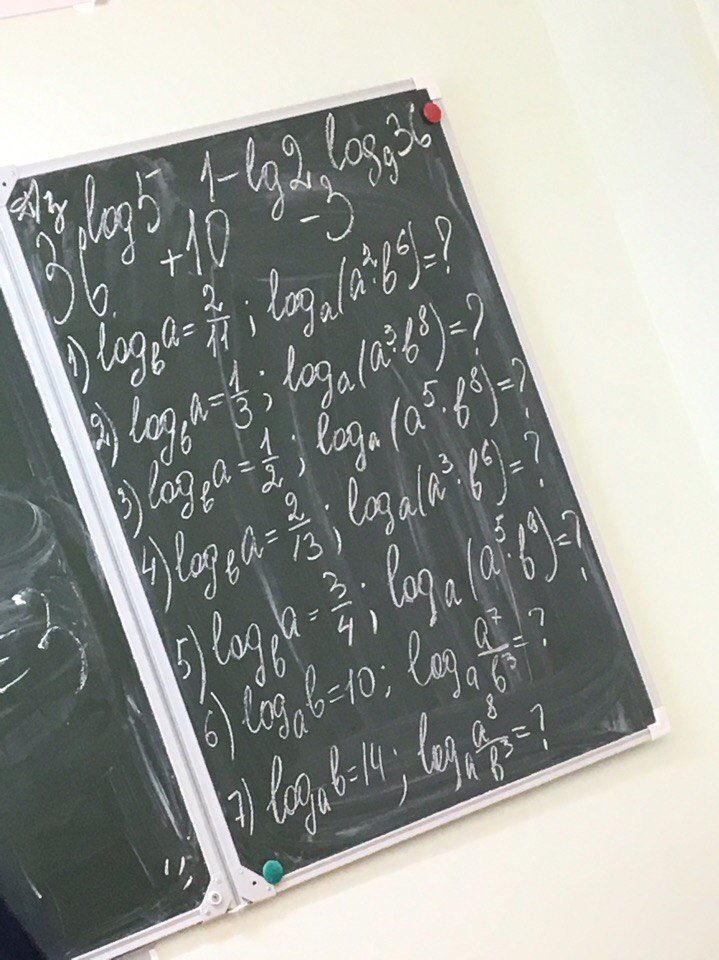 Д/з
36^{log 5} + 10^{1-lg2} - 3^{log₉36}
1) log_b a = 2/11; log_a(a²·b⁶)=?
2) log_b a = 1/3; log_a(a³·b⁸)=?
3) log_b a = 1/2; log_a(a⁵·b⁸)=?
4) log_b a = 2/13; log_a(a³·b⁶)=?
5) log_b a = 3/4; log_a(a⁵·b⁹)=?
6) log_a b = 10; log_a a⁷/b³=?
7) log_a b = 14; log_a a⁸/b³=?